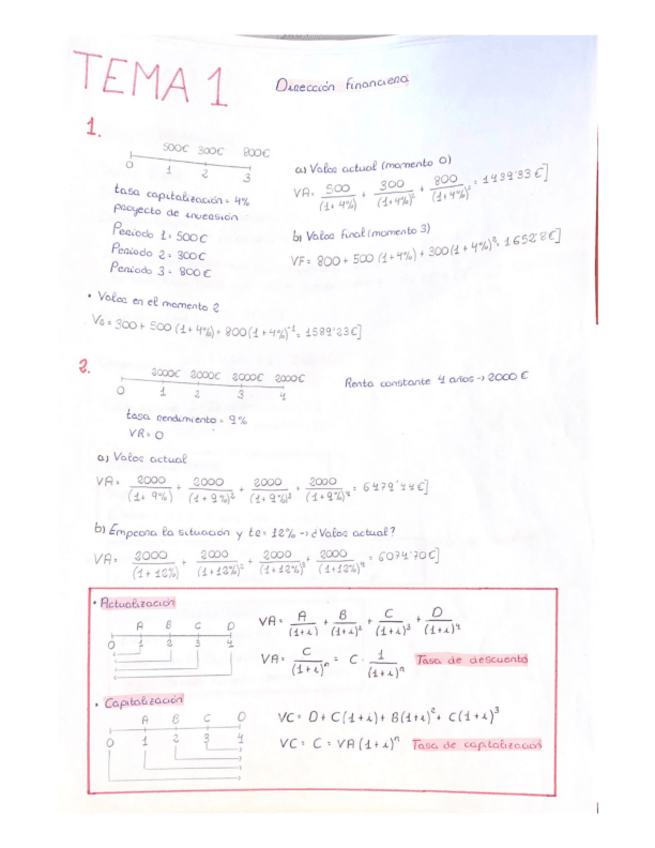 TEMA 1
Dirección financiera
1.
500€ 300€ 800€
0 1 2 3
tasa capitalización = 4%
proyecto de inversión
Periodo 1 = 500€
Periodo 2 = 300€
Periodo 3 = 800€
a) Valor actual (momento 0)
VA = 500/(1+4%) + 300/(1+4%)² + 800/(1+4%)³ = 1469'33€]
b) Valor final (momento 3)
VF = 800 + 500 (1+4%) + 300 (1+4%)² = 1652'8€]
• Valor en el momento 2
= 300 + 500 (1+4%) + 800 (1+4%)⁻¹ = 1589'23€]
2.
2000€ 2000€ 2000€ 2000€
0 1 2 3 4
Renta constante 4 años → 2000€
tasa rendimiento = 9%
VR = 0
a) Valor actual
VA = 2000/(1+9%) + 2000/(1+9%)² + 2000/(1+9%)³ + 2000/(1+9%)⁴ = 6479'44€]
b) Empeora la situación y = 12% → ¿Valor actual?
VA = 2000/(1+12%) + 2000/(1+12%)² + 2000/(1+12%)³ + 2000/(1+12%)⁴ = 6074'70€]
• Actualización
A B C D
0 1 2 3 4
VA = A/(1+i) + B/(1+i)² + C/(1+i)³ + D/(1+i)⁴
VA = C/(1+i)ⁿ = C · 1/(1+i)ⁿ Tasa de descuento
• Capitalización
A B C D
0 1 2 3 4
VC = D + C(1+i) + B(1+i)² + C(1+i)³
VC = C = VA(1+i)ⁿ Tasa de capitalización